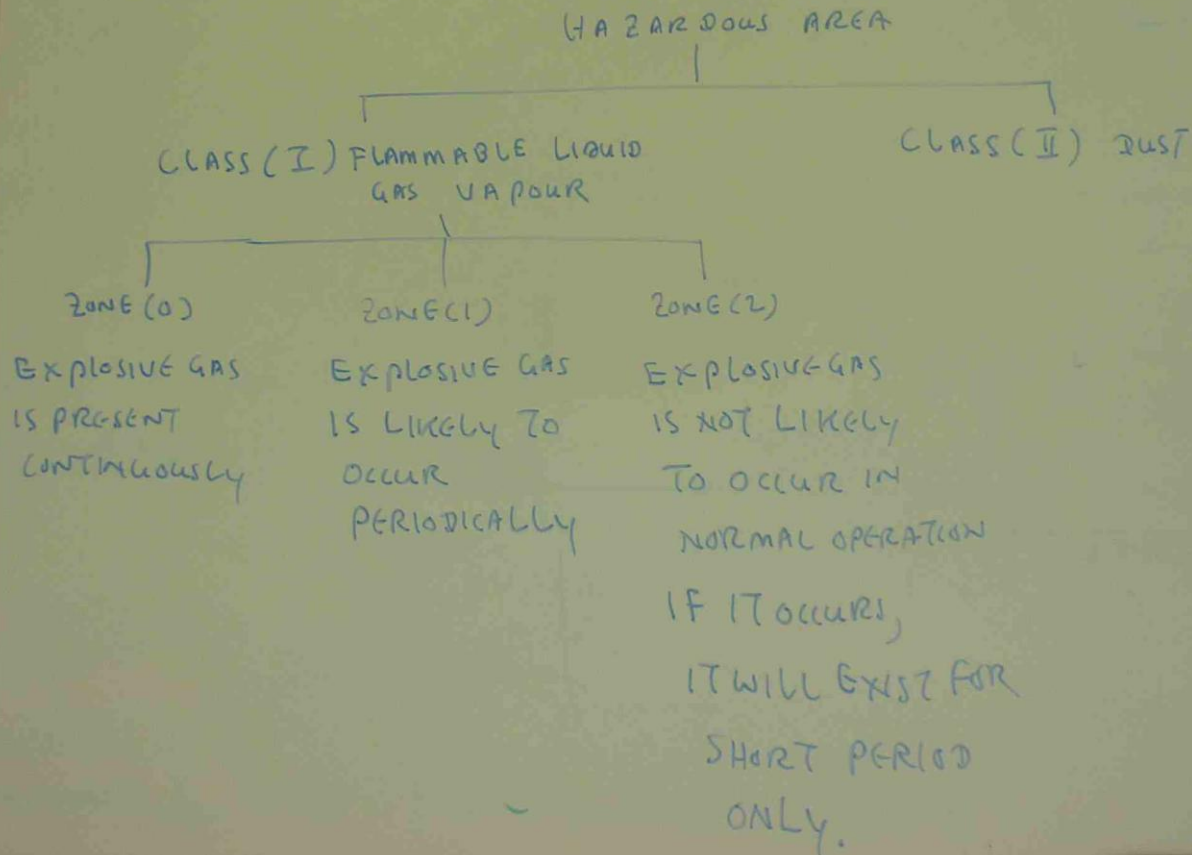 HAZARDOUS AREA
CLASS (I) FLAMMABLE LIQUID
GAS VAPOUR
CLASS (II) DUST
ZONE (0)
EXPLOSIVE GAS
IS PRESENT
CONTINUOUSLY
ZONE (1)
EXPLOSIVE GAS
IS LIKELY TO
OCCUR
PERIODICALLY
ZONE (2)
EXPLOSIVE GAS
IS NOT LIKELY
TO OCCUR IN
NORMAL OPERATION
IF IT OCCURS,
IT WILL EXIST FOR
SHORT PERIOD
ONLY.